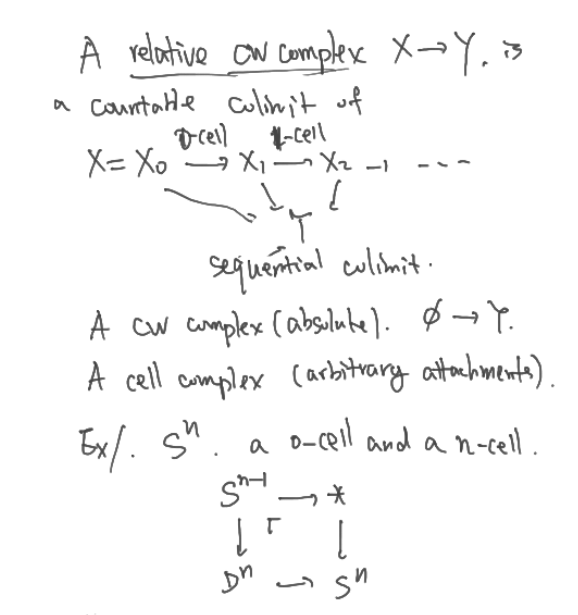 A relative CW complex X → Y. is
a countable colimit of
0-cell 1-cell
X = X₀ → X₁ → X₂ → ---
Y
sequential colimit.
A CW complex (absolute). ∅ → Y.
A cell complex (arbitrary attachments).
Ex/. Sⁿ. a 0-cell and a n-cell.
Sⁿ⁻¹ → *
↓ ⌜ ↓
Dⁿ → Sⁿ